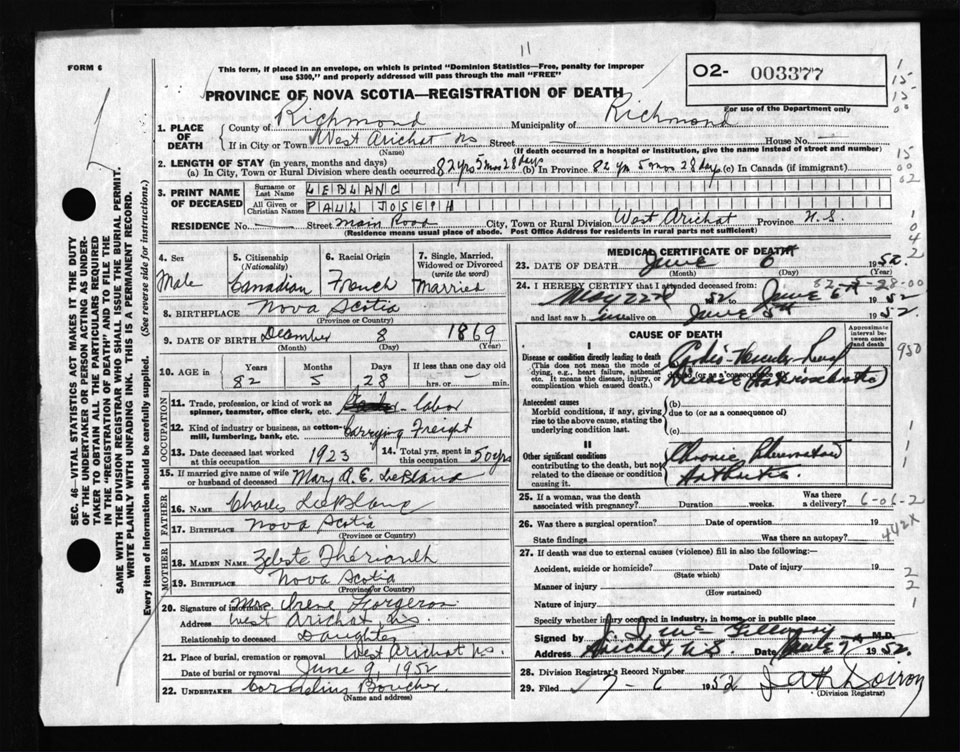 11
FORM 6
This form, if placed in an envelope, on which is printed "Dominion Statistics—Free, penalty for improper
use $300," and properly addressed will pass through the mail "FREE"
O2- 003377
For use of the Department only
PROVINCE OF NOVA SCOTIA—REGISTRATION OF DEATH
1. PLACE OF DEATH
County of Richmond Municipality of Richmond
If in City or Town West Arichat NS Street House No.
(Name) (If death occurred in a hospital or institution, give the name instead of street and number)
2. LENGTH OF STAY (in years, months and days)
(a) In City, Town or Rural Division where death occurred 82 yrs 5 mos 28 days (b) In Province 82 yrs 5 mos 28 days (c) In Canada (if immigrant)
3. PRINT NAME OF DECEASED
Surname or Last Name LEBLANC
All Given or Christian Names PAUL JOSEPH
RESIDENCE No. Street Main Road City, Town or Rural Division West Arichat Province N.S.
(Residence means usual place of abode. Post Office Address for residents in rural parts not sufficient)
4. Sex Male
5. Citizenship (Nationality) Canadian
6. Racial Origin French
7. Single, Married, Widowed or Divorced (write the word) Married
8. BIRTHPLACE Nova Scotia
(Province or Country)
9. DATE OF BIRTH December 8 1869
(Month) (Day) (Year)
10. AGE in Years Months Days If less than one day old
82 5 28 hrs. or min.
OCCUPATION
11. Trade, profession, or kind of work as spinner, teamster, office clerk, etc. labor
12. Kind of industry or business, as cotton-mill, lumbering, bank, etc. Carrying Freight
13. Date deceased last worked at this occupation 1923
14. Total yrs. spent in this occupation 50 yrs
15. If married give name of wife or husband of deceased Mary A. E. LeBlanc
FATHER
16. Name Charles LeBlanc
17. Birthplace Nova Scotia
(Province or Country)
MOTHER
18. MAIDEN NAME Zeleste Theriault
19. Birthplace Nova Scotia
(Province or Country)
20. Signature of informant Mrs. Irene Forgeron
Address West Arichat, N.S.
Relationship to deceased Daughter
21. Place of burial, cremation or removal West Arichat N.S.
Date of burial or removal June 9, 1952
22. UNDERTAKER Cornelius Boucher
(Name and address)
MEDICAL CERTIFICATE OF DEATH
23. DATE OF DEATH June 6 1952.
(Month) (Day) (Year)
24. I HEREBY CERTIFY that I attended deceased from:
May 22nd 1952 to June 6th 1952
and last saw h alive on June 5th 1952.
CAUSE OF DEATH
Approximate interval between onset and death
I
Disease or condition directly leading to death
(This does not mean the mode of dying, e.g., heart failure, asthenia etc. It means the disease, injury, or complication which caused death.)
due to (or as a consequence of)
Antecedent causes
Morbid conditions, if any, giving rise to the above cause, stating the underlying condition last.
(b)
due to (or as a consequence of)
(c)
II
Other significant conditions
contributing to the death, but not related to the disease or condition causing it.
Chronic Rheumatoid
Arthritis
25. If a woman, was the death associated with pregnancy? Duration weeks. Was there a delivery?
26. Was there a surgical operation? Date of operation 19
State findings Was there an autopsy?
27. If death was due to external causes (violence) fill in also the following:—
Accident, suicide or homicide? Date of injury 19
(State which)
Manner of injury
(How sustained)
Nature of injury
Specify whether injury occurred in industry, in home, or in public place
Signed by M.D.
Address Arichat, N.S. Date 1952.
28. Division Registrar's Record Number
29. Filed 7-6 1952
(Division Registrar)
SEC. 46—VITAL STATISTICS ACT MAKES IT THE DUTY
OF THE UNDERTAKER OR PERSON ACTING AS UNDERTAKER
TO OBTAIN ALL THE PARTICULARS REQUIRED
IN THE "REGISTRATION OF DEATH" AND TO FILE THE
SAME WITH THE DIVISION REGISTRAR WHO SHALL ISSUE THE BURIAL PERMIT.
WRITE PLAINLY WITH UNFADING INK. THIS IS A PERMANENT RECORD.
Every item of information should be carefully supplied. (See reverse side for instructions.)
6-06-2
442X
930